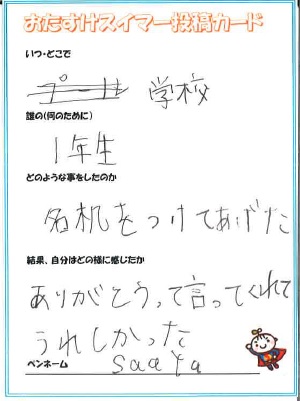 おたすけスイマー投稿カード
いつ・どこで
プール 学校
誰の(何のために)
1年生
どのような事をしたのか
名札をつけてあげた
結果、自分はどの様に感じたか
ありがとうって言ってくれて
うれしかった
ペンネーム saaya